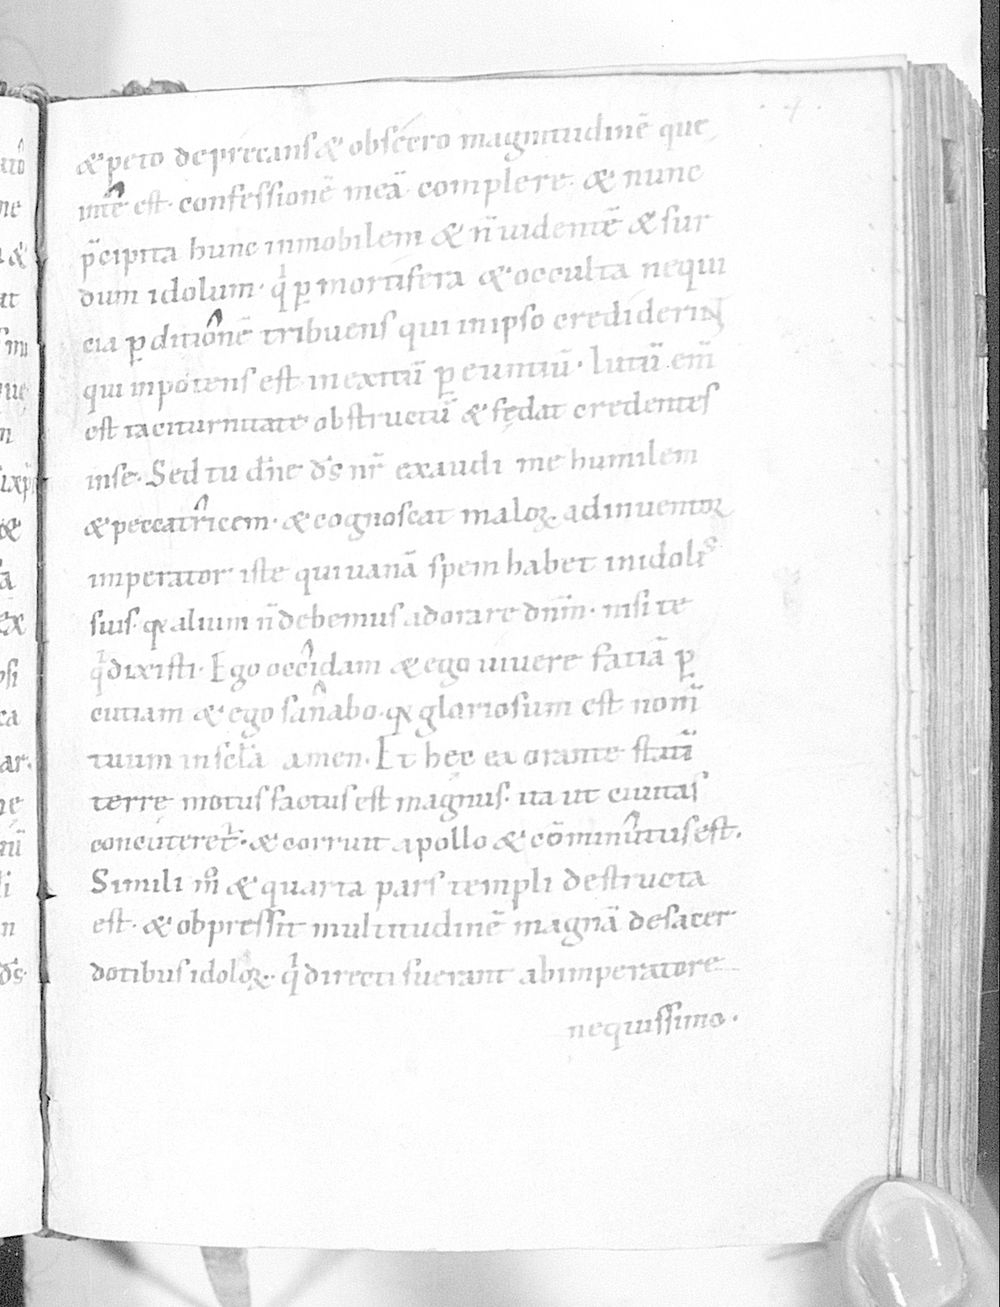 & peto deprecans & obsecro magnitudinē que
inte᷑ est. confessionē meā complere. & nunc
p̄cipita hunc inmobilem & n̄ uidentē & sur
dum idolum. qͥ ꝑ mortifera & occulta nequi
cia ꝑditionē tribuens qui in ipso crediderint
qui inpotens est in exitū ꝑeuntiū. lutū em̄
est taciturnitate obstructū & sędat credentes
in se. Sed tu dn̄e ds̄ nr̄ exaudi me humilem
& peccatricem. & cognoscat maloꝝ adinuentor
imperator iste qui uanā spem habet in idolis
suis. qꝛ alium n̄ debemus adorare dnm̄. nisi te
qͥ dixisti. Ego occidam & ego uiuere fatiā ꝑ
cutiam & ego sanabo. qꝛ gloriosum est nom̄
tuum in scl̄a amen. Et hec ea orante statī
terrę motus factus est magnus. ita ut ciuitas
concuteret᷑. & corruit apollo & cōminutus est.
Simili m̊ & quarta pars templi destructa
est. & obpressit multitudinē magnā de sacer
dotibus idoloꝝ. qͥ directi fuerant ab imperatore
nequissimo.